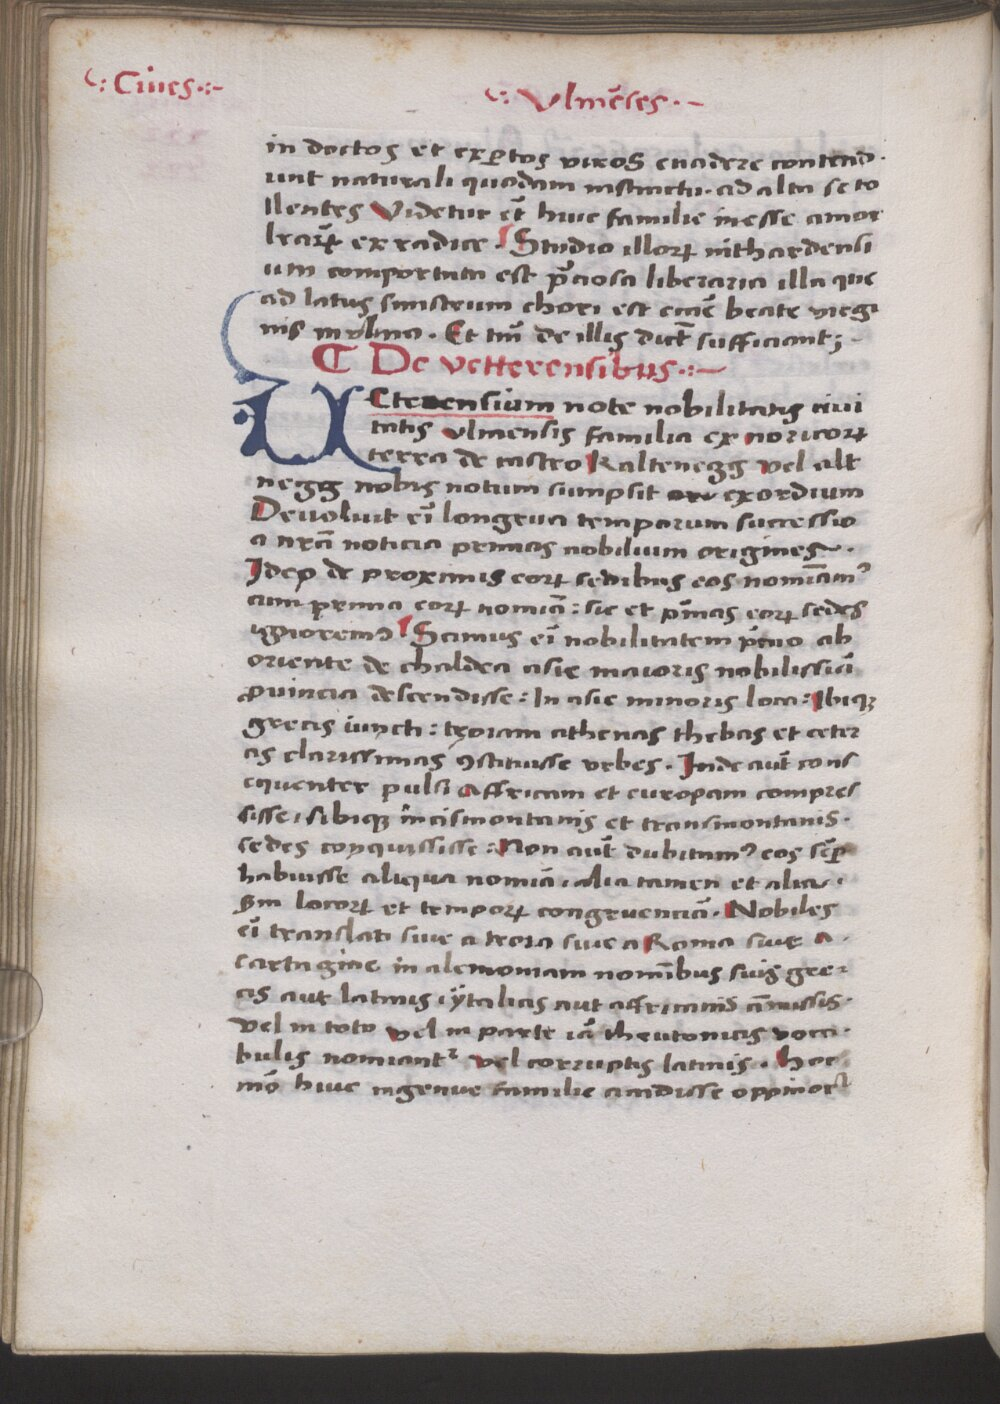 Ciues
Vlmēses
in doctos et exꝑtos viros euadere contend
unt naturali quodam instinctu. ad alta se to
llentes Videtur et̄ huic familie inesse amor
lr̄aꝝ ex radice. Studio illoꝝ nithardensi
um comportata est p̄ciosa liberaria illa que
ad latus sinistrum chori est eccīe beate virgi
nis in vlma. Et tm̄ de illis dict̄ sufficiant;
De vetterensibus
VEterensium note nobilitatis ciui
tatis vlmensis familia ex noricoꝝ
terra de castro Kaltenegg vel alt
negg nobis notum sumpsit exordium
Deuoluit ei̅ longeua temporum successio
a nr̄a noticia primas nobilium origines.
Ideo de proximis eoꝝ sedibus eos nominamꝰ
cum prima eoꝝ nomīa: sic et p̄mas eoꝝ sedes
ignoremꝰ Scimus ei̅ nobilitatem p̄mo ab
oriente de chaldea asie maioris nobilissia̅
ꝓuincia descendisse: In asie minoris loca: Ibiqꝫ
grecis iuncti: troiam athenas thebas et ceter
as clarissimas ꝯstituisse vrbes. Inde aut̄ cons
equenter pulsi affricam et europam compres
sisse, sibiqꝫ in cismontanis et transmontanis.
sedes conquisisse: Non aut̄ dubitamꝰ eos semꝑ
habuisse aliqua nomīa, alia tamen et alia.
Sm̄ locoꝝ et tempoꝝ congruenciā. Nobiles
ei̅ translati siue a troia siue a Roma siue a.
cartagine in alemoniam nominibus suis gre
cis aut latinis, ytalicis aut affricanis amissis.
vel in toto vel in parte iā theutonicis voca
bulis nominantᷣ vel corruptis latinis. hoc
mō huic ingenue familie accidisse oppinor